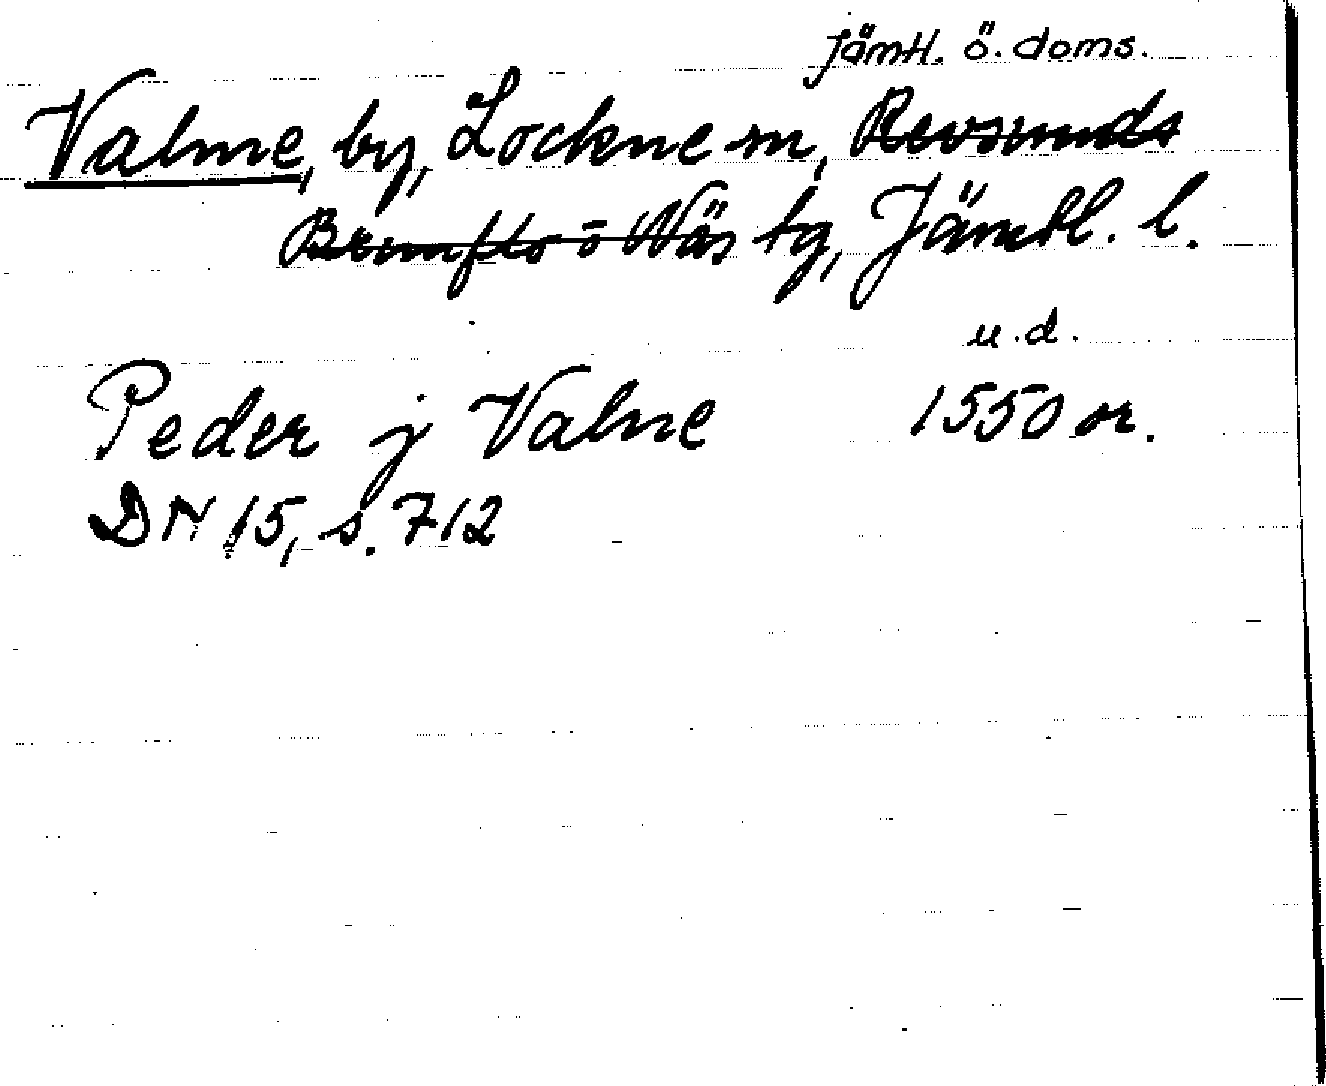 Jämtl. ö. doms.
Valne, by, Lockne sn, Revsunds
Brunflo o Näs tg, Jämtl. l.
u.d.
Peder j Valne 1550 or.
DN 15, s. 712